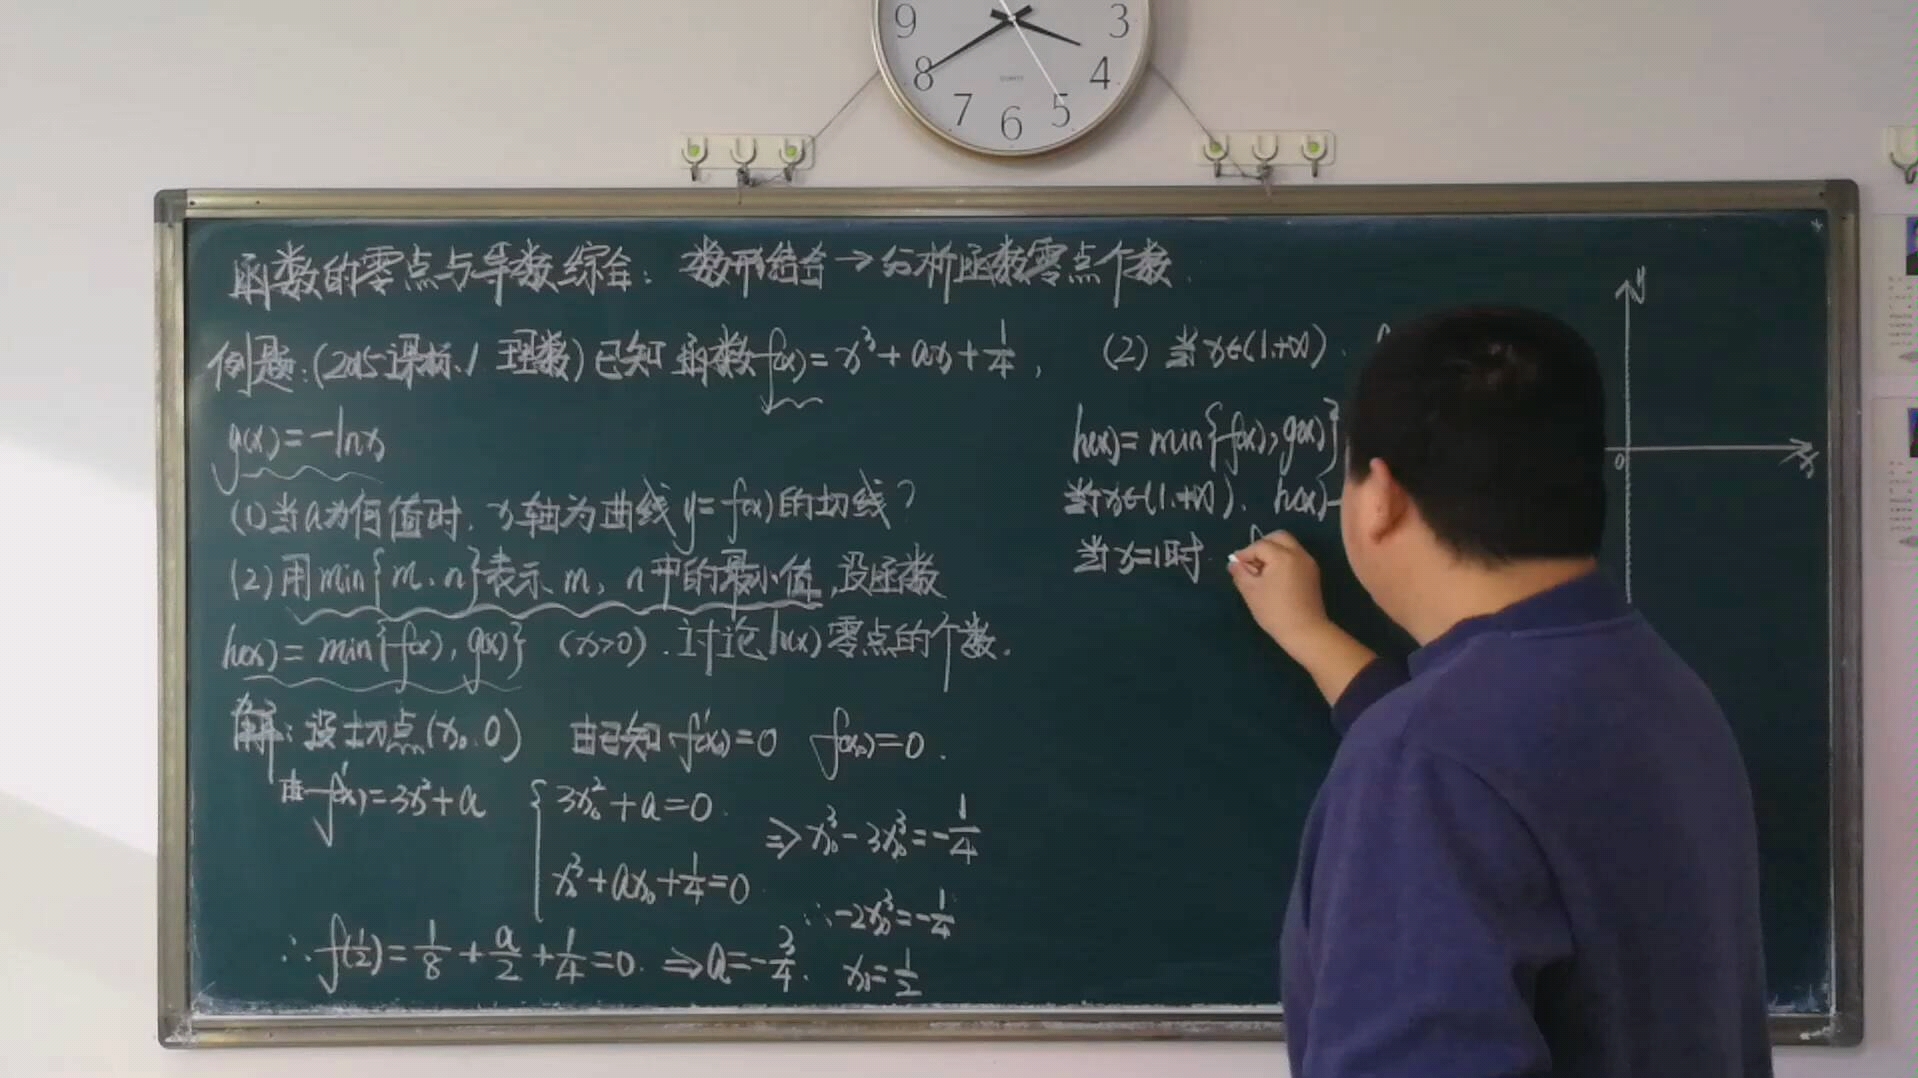 9
3
8
4
7
5
6
QUARTZ
函数的零点与导数综合：数形结合→分析函数零点个数.
例题:(2015课标1 理数)已知函数f(x)=x³+ax+1/4,
g(x)=-lnx
(1)当a为何值时，x轴为曲线y=f(x)的切线?
(2)用min{m、n}表示m，n中的最小值,设函数
h(x)=min{f(x),g(x)} (x>0).讨论h(x)零点的个数.
解:设切点(x₀,0) 由已知f'(x₀)=0 f(x₀)=0.
由f'(x)=3x²+a
{3x₀²+a=0.
x₀³+ax₀+1/4=0
⇒x₀³-3x₀³=-1/4
∴-2x₀³=-1/4
x₀=1/2
∴f(1/2)=1/8+a/2+1/4=0.⇒a=-3/4.
(2)当x∈(1,+∞).
h(x)=min{f(x),g(x)}
当x∈(1,+∞). h(x)
当x=1时.
y
0
x